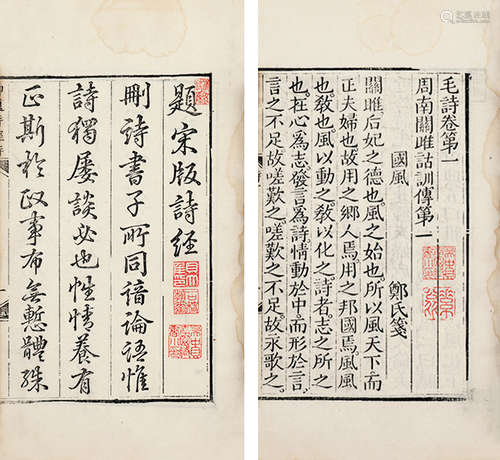 毛詩卷第一
周南關雎詁訓傳第一
國風 鄭氏箋
關雎后妃之德也風之始也所以風天下而
正夫婦也故用之鄉人焉用之邦國焉風風
也教也風以動之教以化之詩者志之所之
也在心為志發言為詩情動於中而形於言
言之不足故嗟歎之嗟歎之不足故永歌之
題宋版詩經
刪詩書子所同諳論語惟
詩獨屢談必也性情養有
正斯於政事布無慙體殊